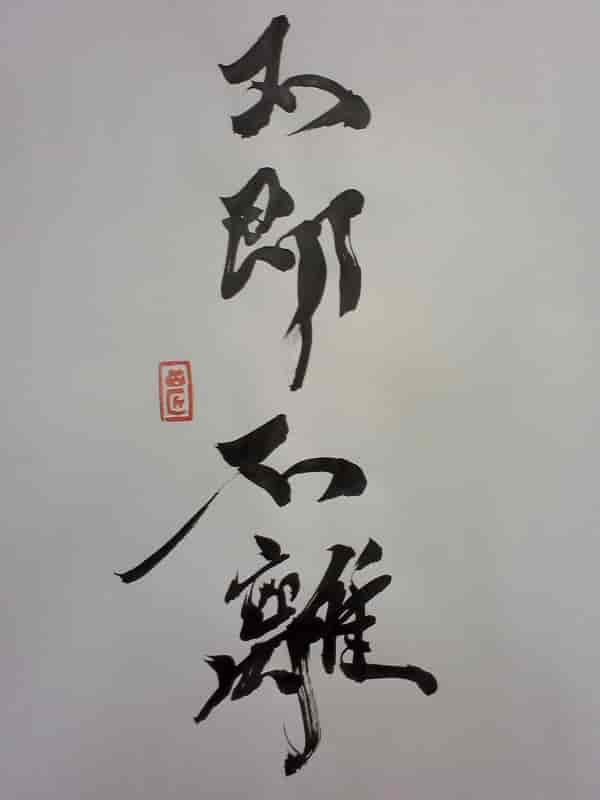 不即不離